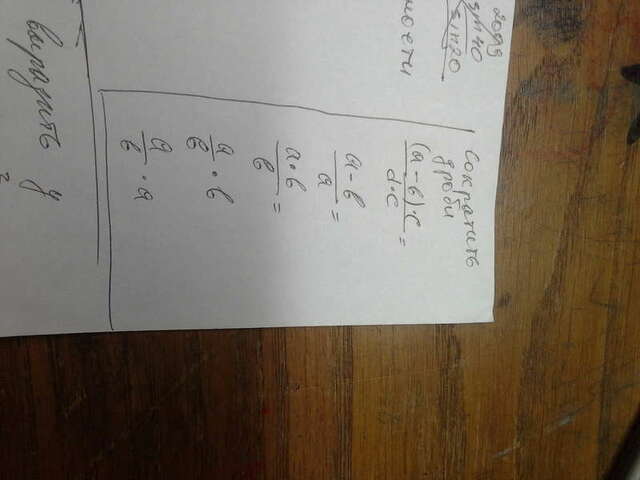 Сократить
дроби
(a-b)·c / d·c =
a-b / a =
a·b / b =
a/b · b
a/b · a
выразить y